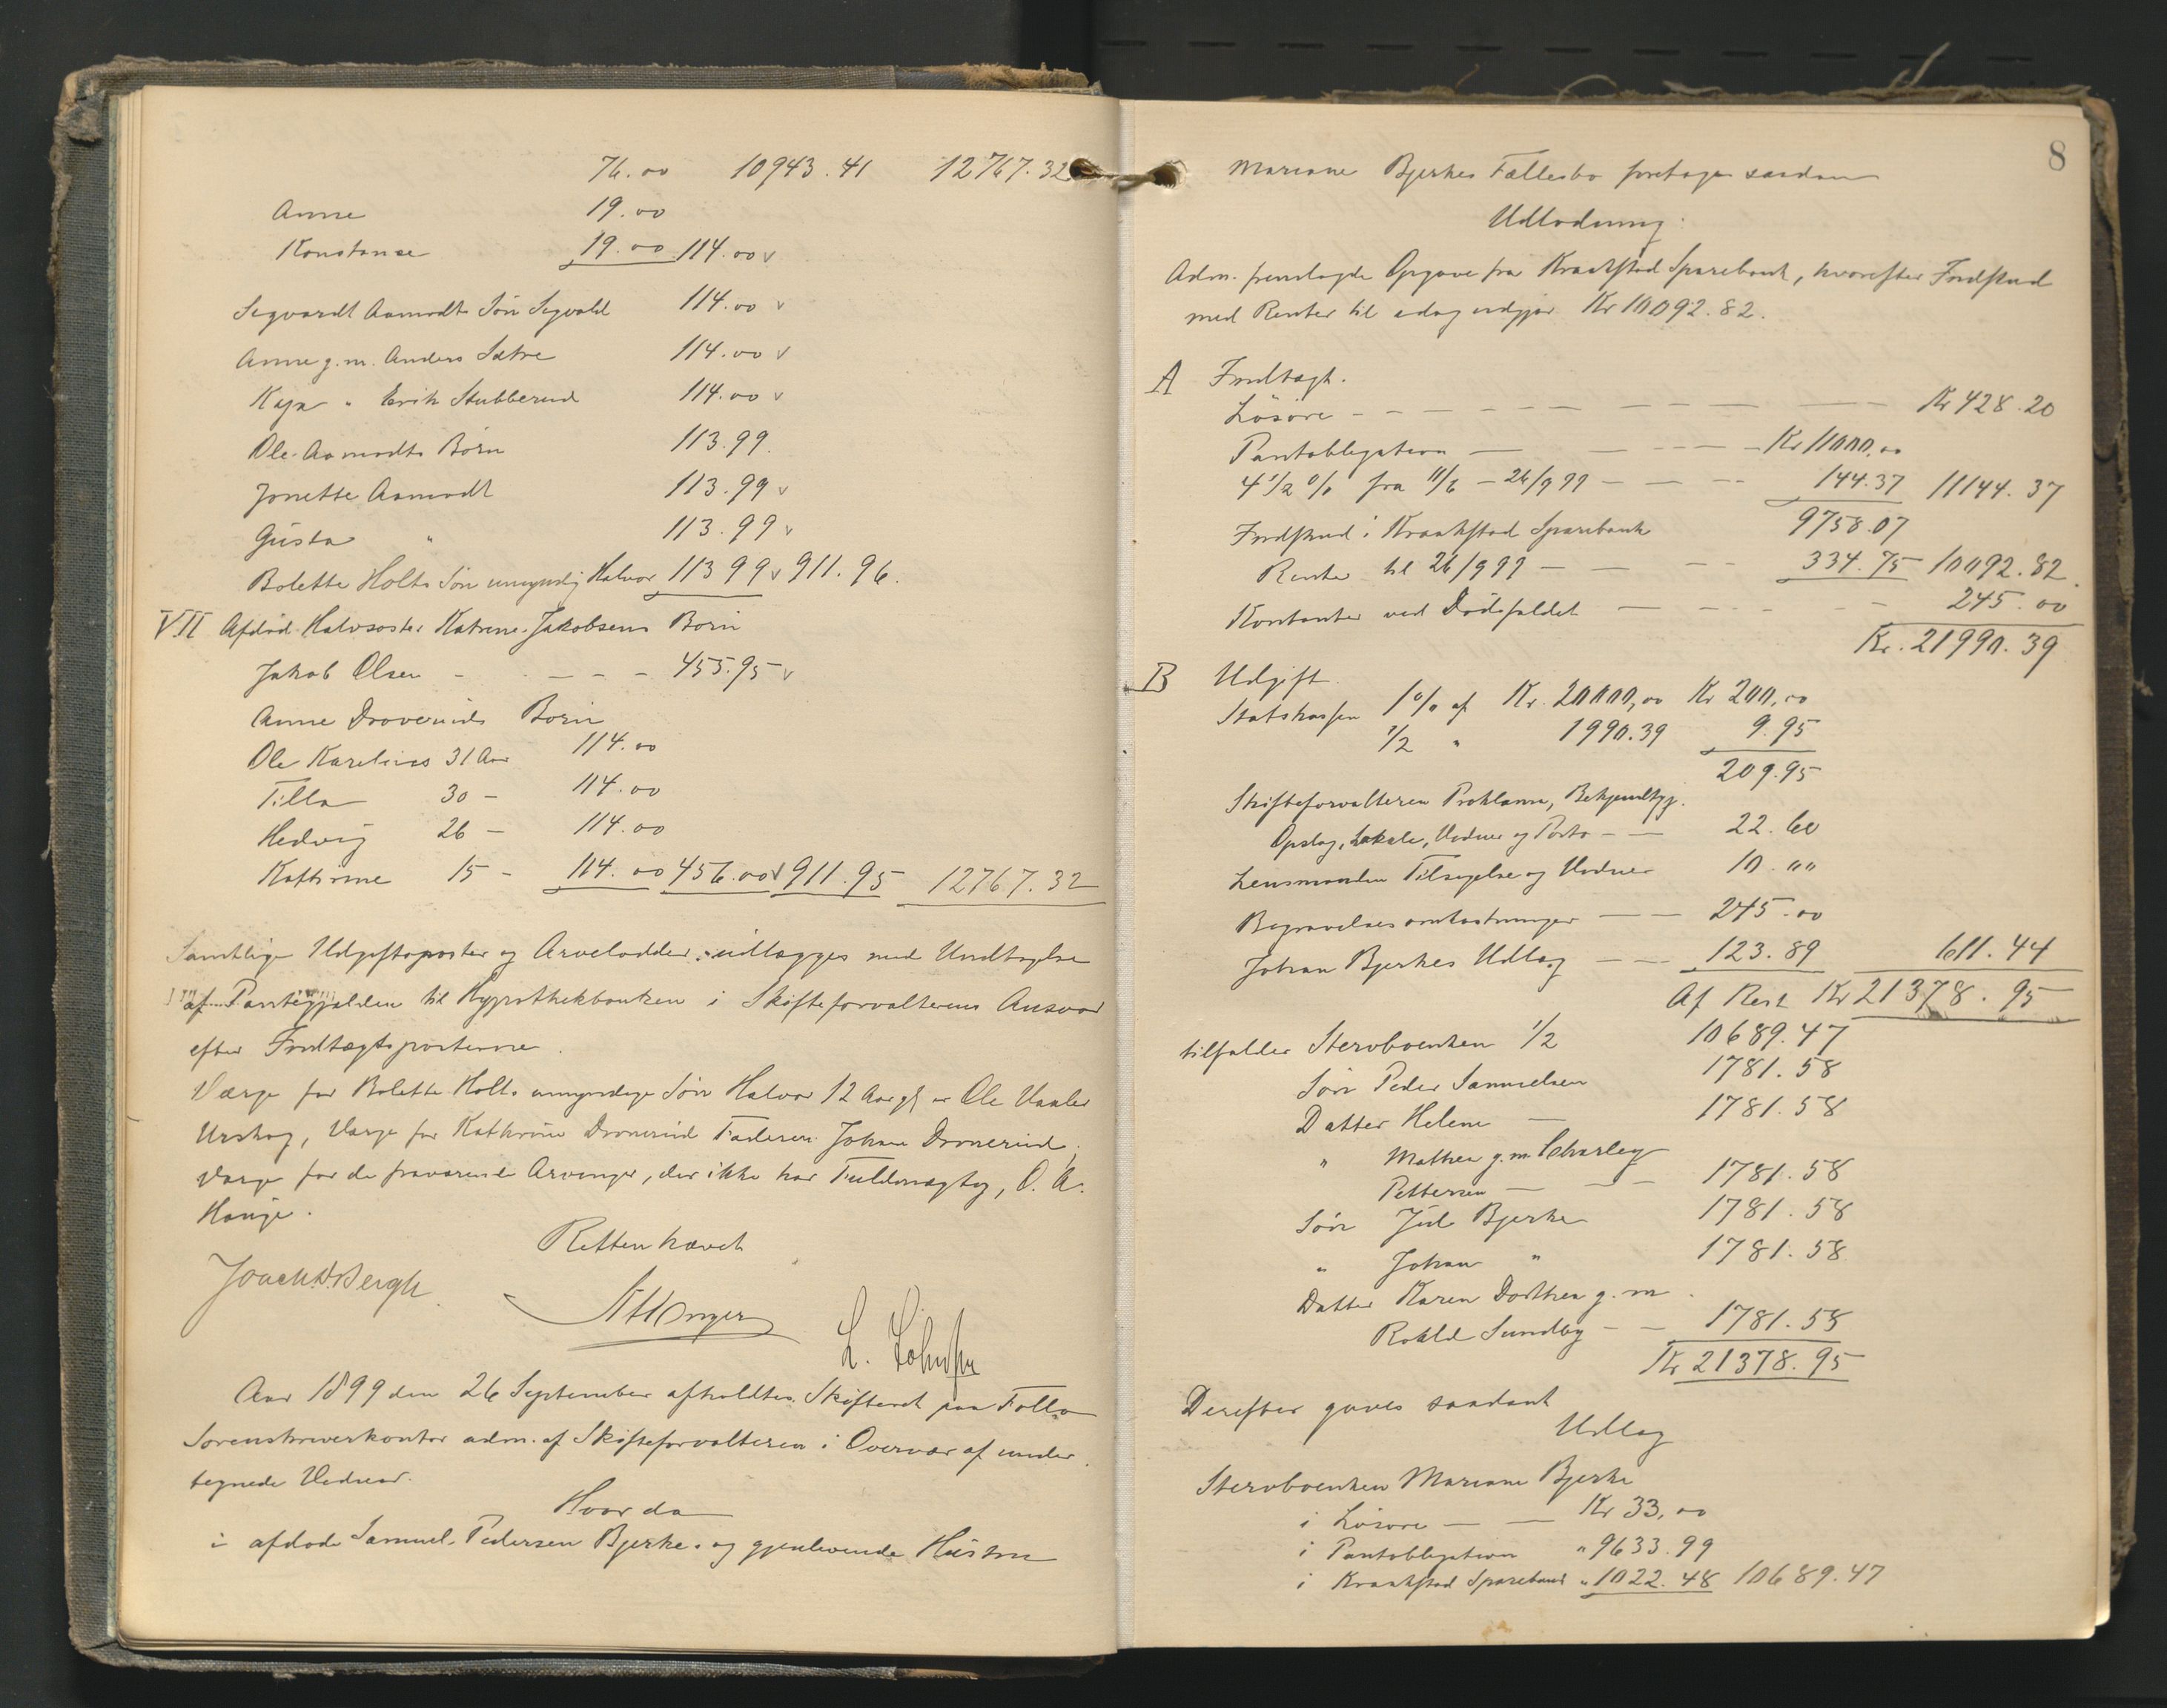 76.00 10943.41 12767.32
Anne 19.00
Konstanse 19.00 114.00 v
Segvardt Aamodts Søn Sigvald 114.00 v
Anne g. m. Anders Sætre 114.00 v
Kaja " Erik Stubberud 114.00 v
Ole Aamodts Børn 113.99
Jonette Aamodt 113.99 v
Gusta " 113.99 v
Bolette Holts Søn umyndig Halvor 113 99 v 911.96.
VII Afdød Halvsøster Katrine Jakobsens Børn
Jakob Olsen - - - - 455.95 v
Anne Droveruds Børn
Ole Karelius 31 Aar 114.00
Tilla 30 - 114.00
Hedvig 26 - 114.00
Kathrine 15 - 114.00 456.00 v 911.95 12767.32
Samtlige Udgiftsposter og Arvelodder udlægges med Undtagelse
af Pantegjælden til Hypothekbanken i Skifteforvalterens Ansvar
efter Indtægtsposterne.
Værge for Bolette Holts umyndige Søn Halvor 12 Aar gl er Ole Vaaler
Urskog, Værge for Kathrine Droverud Faderen Johan Droverud,
Værge for de fraværende Arvinger, der ikke har Fuldmægtig, O. A.
Hauge.
Retten hævet
L.
Aar 1899 den 26 September afholdtes Skifteret paa Follo
Sorenskriverkontor adm. af Skifteforvalteren i Overvær af under
tegnede Vidner.
Hvor da
i afdøde Samuel Pedersen Bjerke og gjenlevende Hustru
8
Mariane Bjerkes Fællesbo foretages saadan
Udlodning:
Adm. fremlagde Opgave fra Kraakstad Sparebank, hvorefter Indskud
med Renter til idag udgjør Kr 10092.82.
A Indtægt.
Løsøre - - - - Kr 428.20
Pantobligation - - - - Kr 11000,00
4 1/2 % fra 11/6 - 26/9 99 - - - 144.37 11144.37
Indskud i Kraakstad Sparebank 9758.07
Renter til 26/9 99 - - - 334.75 10092.82
Kontanter ved Dødsfaldet - - - - 245.00
Kr. 21990.39
B Udgift.
Statskassen 1 % af Kr. 20000,00 Kr 200,00
1/2 " 1990.39 9.95
209.95
Skifteforvalteren Proklama, Bekjendtgj.
Opslag, Lokale, Vidner og Porto - - 22.60
Lensmanden Tilsigelse og Vidner 10.""
Begravelsesomkostninger - - 245.00
Johan Bjerkes Udlæg - - 123.89 611.44
Af Rest Kr 21378.95
tilfalder Stervboenken 1/2 10689.47
Søn Peder Samuelsen 1781.58
Datter Helene - 1781.58
" Mathea g. m. Charley
Pettersen - - - 1781.58
Søn Jul Bjerke 1781.58
" Johan " 1781.58
Datter Karen Dorthea g. m.
Sundby - - 1781.58
Kr 21378.95
Derefter gaves saadant
Udlæg
Stervboenken Mariane Bjerke
i Løsøre - - Kr 33,00
i Pantobligation " 9633.99
i Kraakstad Sparebank " 1022.48 10689.47